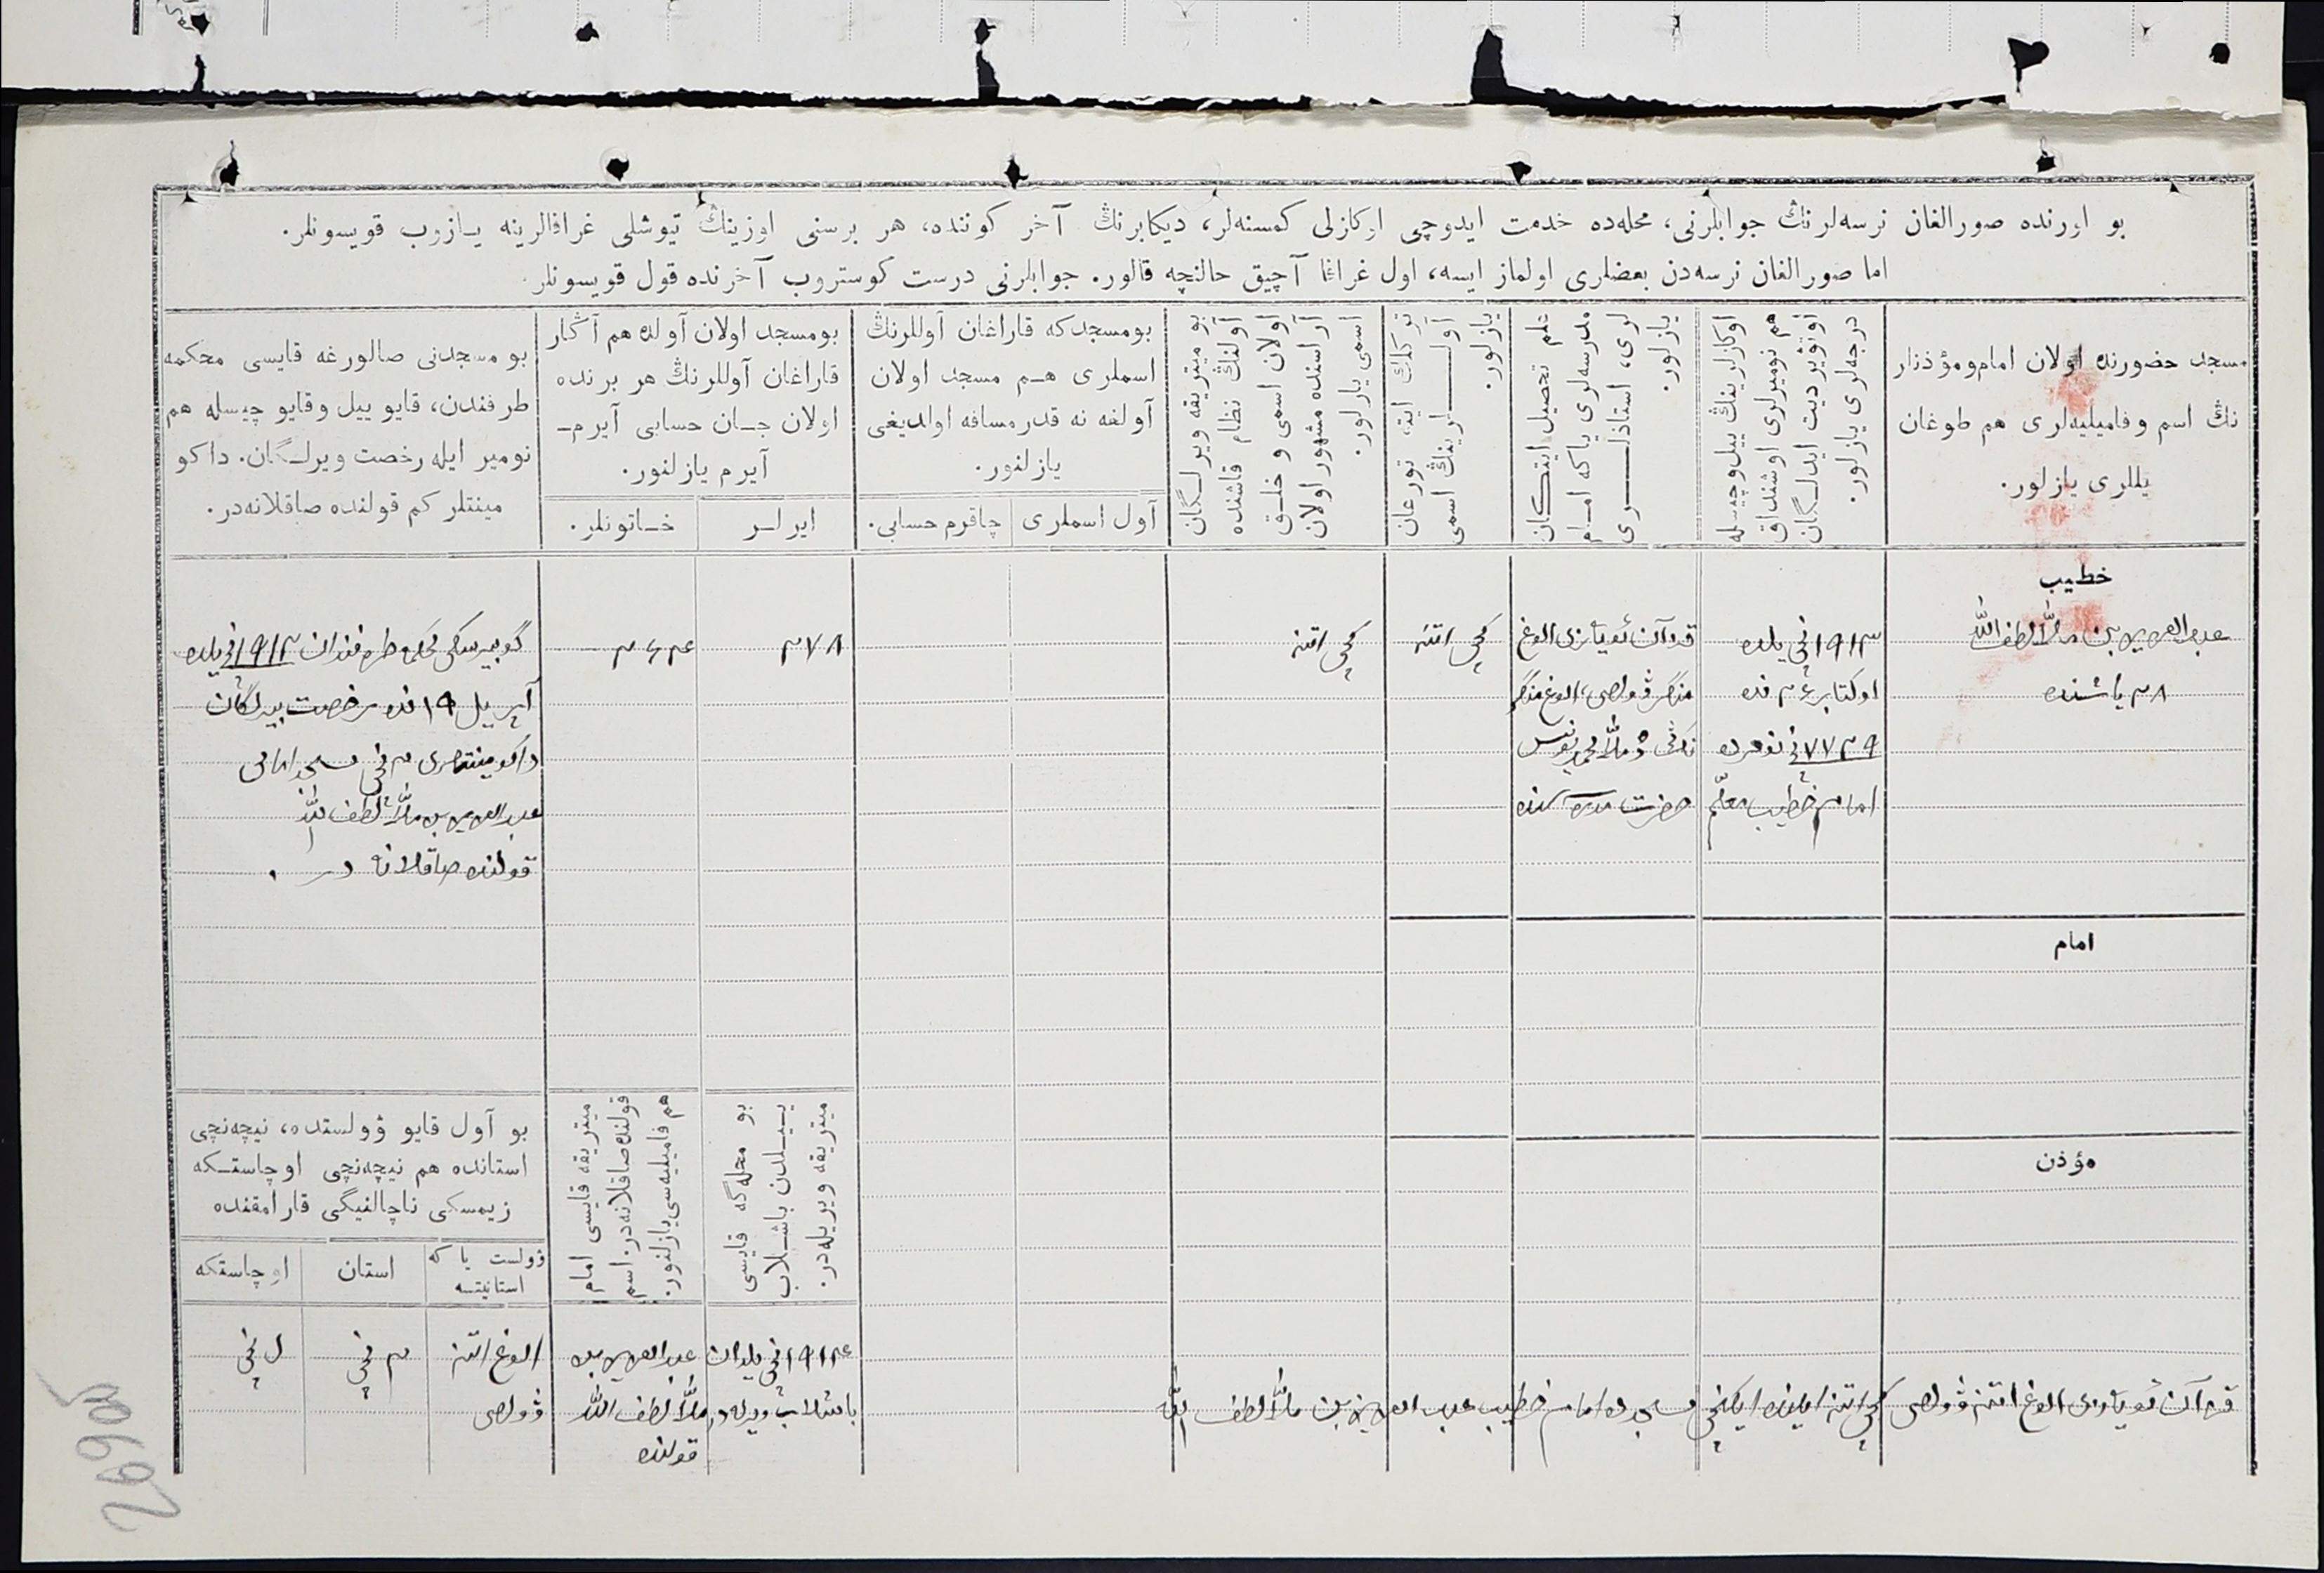 بو اورنده صورالغان نرسه‌لرنڭ جوابلرنی، محله‌ده خدمت ایدوچی اوکازلی کمسنه‌لر، دیکابرنڭ آخر کوننده، هر برسنی اوزینڭ تیوشلی غرافالرینه یازوب قویسونلر.
اما صورالغان نرسه‌دن بعضلری اولماز ایسه، اول غرافا آچیق حالنچه قالور. جوابلرنی درست کوستروب آخرنده قول قویسونلر.
مسجد حضورنده اولان امام و مؤذنلر
نڭ اسم و فامیلیه‌لری هم طوغان
یللری یازلور.
اوکازلرینڭ ییل و چیسله
هم نومیرلری اوشنداق
اوتویردیت ایدلگان
درجه‌لری یازلور.
علم تحصیل ایتکان
مدرسه‌لری یاکه امام
لری، استاذلری
یازلور.
ترکلك ایته تورغان
آوللرینڭ اسمی
یازلور.
بو میتریقه ویرلگان
آولنڭ نظام قاشنده
اولان اسمی و خلق
آراسنده مشهور اولان
اسمی یازلور.
بو مسجدکه قاراغان آوللرنڭ
اسملری هم مسجد اولان
آولغه نه قدر مسافه اولدیغی
یازلنور.
آول اسملری
چاقرم حسابی.
بو مسجد اولان آولده هم آڭار
قاراغان آوللرنڭ هر برنده
اولان جان حسابی آیرم-
آیرم یازلنور.
ایرلر
خاتونلر.
بو مسجدنی صالورغه قایسی محکمه
طرفندن، قایو ییل و قایو چیسله هم
نومیر ایله رخصت ویرلگان. داکو
مینتلر کم قولنده صاقلانه‌در.
خطیب
عبدالعزیز بن ملا لطف الله
۲۸ یاشنده
۱۹۱۳ نچی یلده
اوکتابر ۲۴ نده
۷۷۲۹ نچی نومرده
امام خطیب معلّم
قزان ئویازی الوغ
منگر ڤولصی، الوغ منگر
ملا محمد یونس
حضرت مدرسه‌سنده
کچی اتنه
کچی اتنه
۲۷۸
گوبیرنسکی محکمه طرفندان ۱۹۱۲ نچی یلده
آپریل ۱۹ نده رخصت بیرلگان
داکومینتلری ۲ نچی مسجد امامی
عبدالعزیز بن ملا لطف الله
قولنده صاقلانه در.
امام
مؤذن
بو محله‌گه قایسی
ییلدن باشلاب
میتریقه ویریله‌در.
میتریقه قایسی امام
قولنده صاقلانه‌در: اسم
هم فامیلیه‌سی یازلنور.
بو آول قایو ڤولستده، نیچه‌نچی
استانده هم نیچه‌نچی اوچاستکه
زیمسکی ناچالنیگی قارامقنده
ڤولست یا که
استانیتسه
استان
اوچاستکه
۱۹۱۴ نچی یلدان
باشلاب ویریله‌در
عبدالعزیز بن
ملا لطف الله
قولنده
الوغ اتنه
ڤولصی
۲ نچی
قزان ئویازی الوغ اتنه ڤولصی کچی اتنه اولینده ایکنچی مسجدده امام خطیب عبدالعزیز بن ملا لطف الله